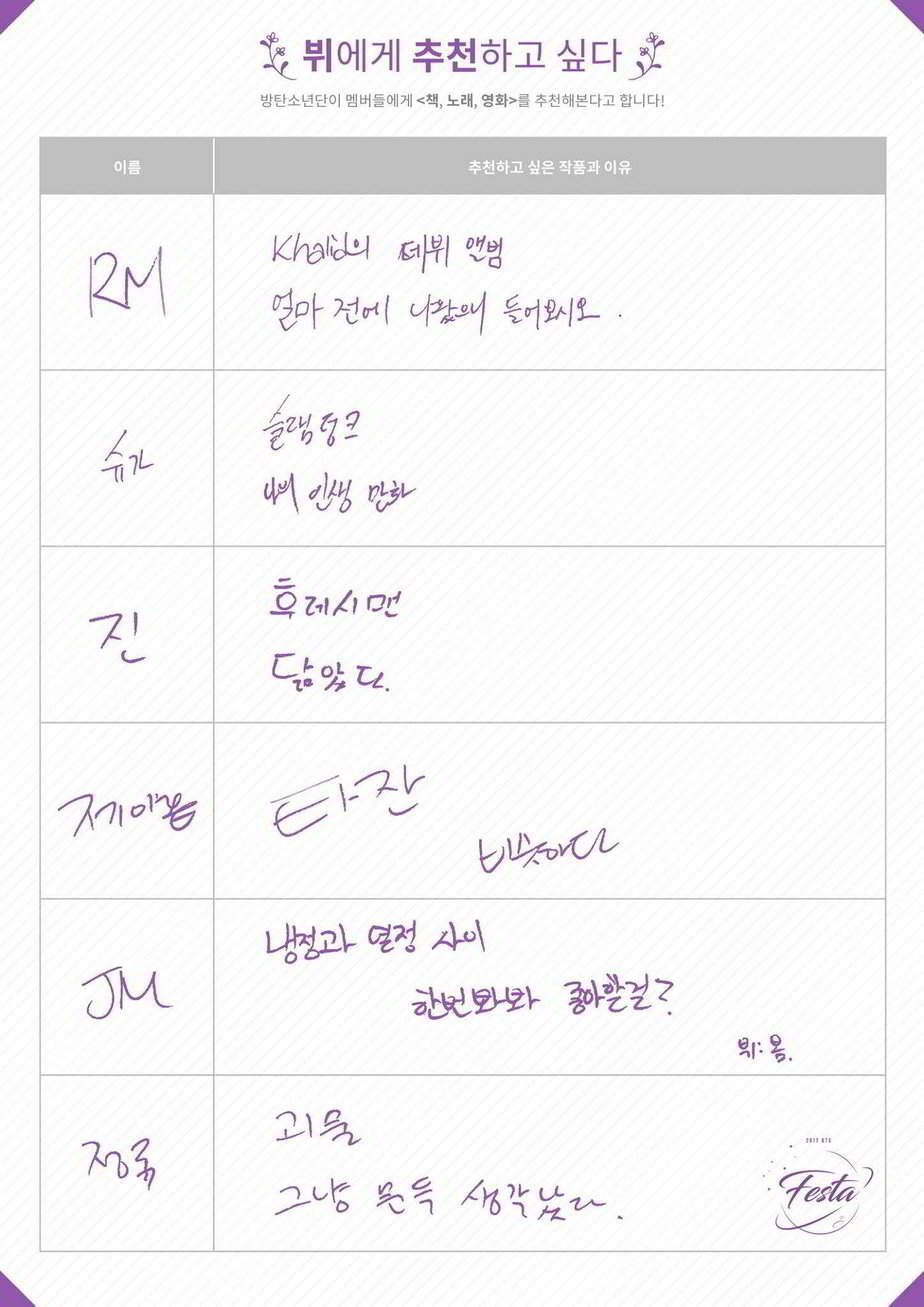 뷔에게 추천하고 싶다
방탄소년단이 멤버들에게 <책, 노래, 영화>를 추천해본다고 합니다!
이름 추천하고 싶은 작품과 이유
RM
Khalid의 데뷔 앨범
얼마 전에 나왔으니 들어보시오.
슈가
슬램덩크
내 인생 만화
진
후레시맨
닮았다.
제이홉
타잔
비슷하다
JM
냉정과 열정 사이
한번봐봐 좋아할걸?
뷔: 봄.
정국
괴물
그냥 문득 생각났다.
2017 BTS
Festa